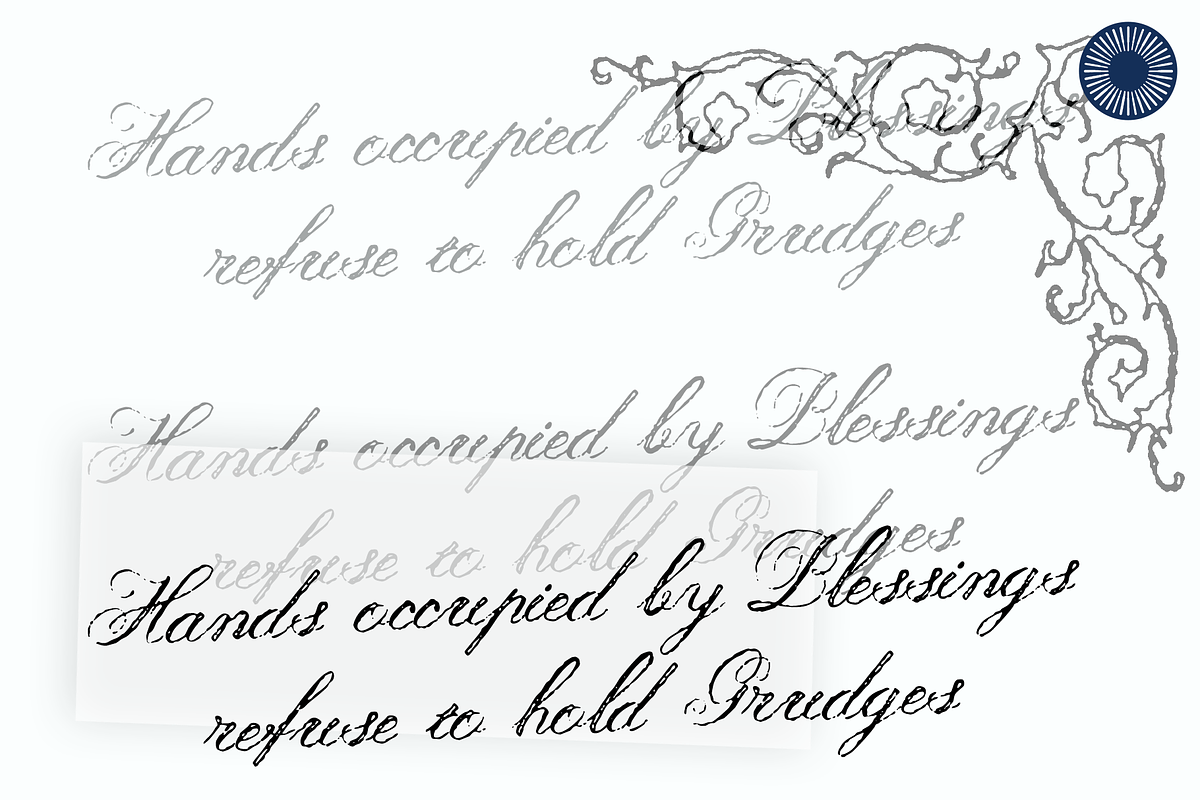 Hands occupied by Blessings
refuse to hold Grudges
Hands occupied by Blessings
refuse to hold Grudges
Hands occupied by Blessings
refuse to hold Grudges